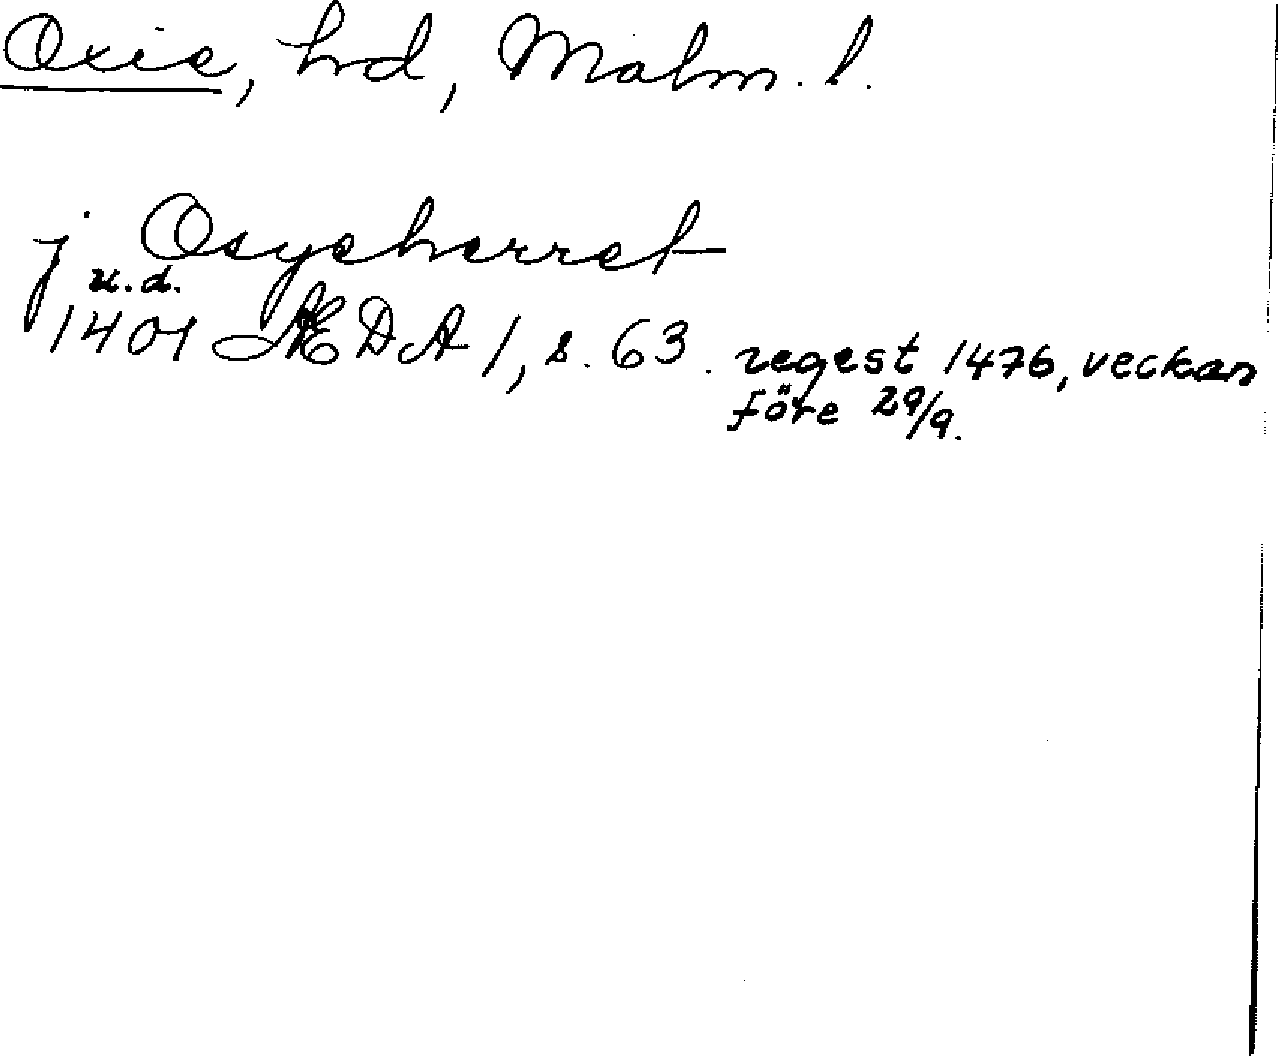 Oxie, hrd, Malm. l.
j Osyeherret
u.d.
1401 ÆDA 1, s. 63. regest 1476, veckan
före 29/9.